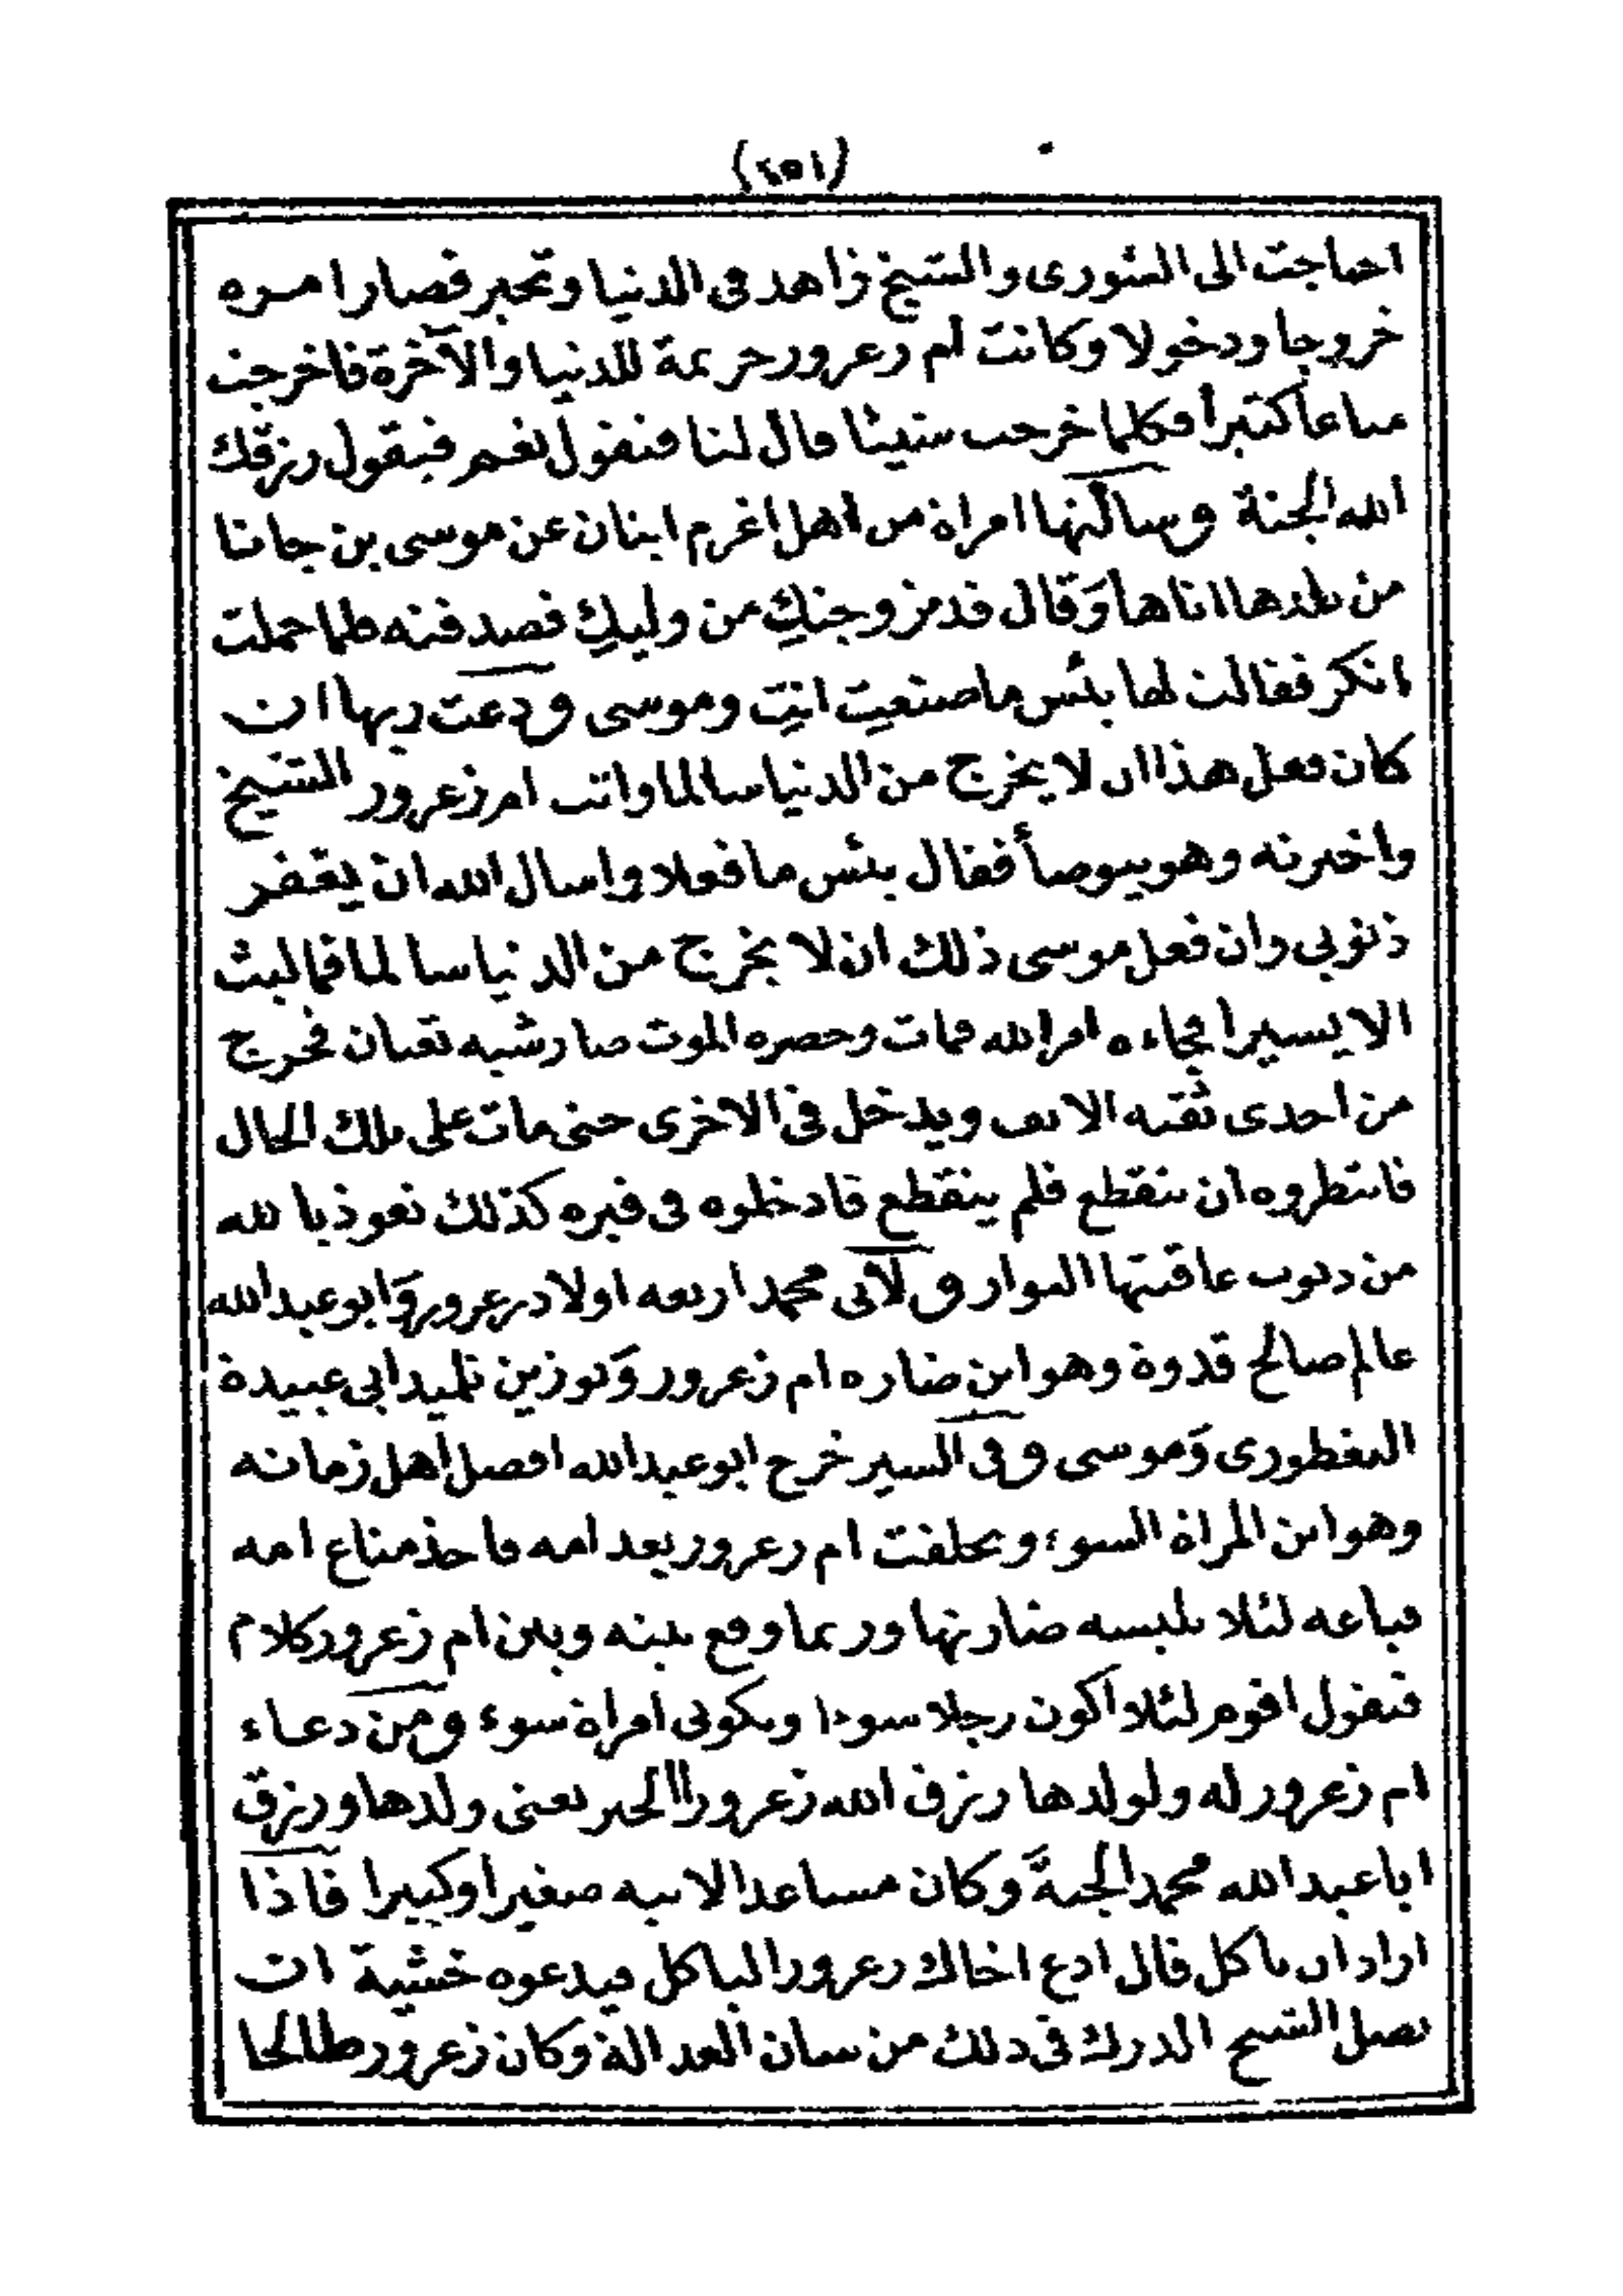 (٢٥١)
احتاجت الى الشورى والشيخ زاهد فى الدنيا وتحير فصار امره
خروجا ودخولا وكانت ام زعرور حريمة للدنيا والآخرة فاخرجت
متاعا كثيرا فكلما خرجت شيئا قال لنا فتقول نعم فيقول رزقك
الله الجنة وسالتها امراة من اهل اغرم اينان عن موسى بن جانا
من بلدها اتاها وَقال قد تزوجتكِ من وليكِ فصدقته فلما حملت
انكر فقالت لها بئس ما صنعتِ انتِ وموسى ودعت ربها ان
كان فعل هذا ان لا يخرج من الدنيا سالما واتت ام زعرور الشيخ
واخبرته وهو يتوضأ فقال بئس ما فعلا واسال الله ان يغفر
ذنوبى وان فعل موسى ذلك ان لا يخرج من الدنيا سالما فما لبث
الا يسيرا فجاءه امر الله فمات وحضره الموت صار شبه ثعبان فخرج
من احدى ثقبه الانف ويدخل فى الاخرى حتى مات على تلك الحال
فانتظروه ان ينقطع فلم ينقطع فادخلوه فى قبره كذلك نعوذ بالله
من ذنوب عاقبتها البوار ولابى محمد اربعه اولاد زعرور وَابو عبدالله
عالم صالح قدوة وهو ابن ضاره ام زعرور وَتوزين تلميد ابى عبيدة
التغطورى وَموسى وفى السير خرج ابو عبدالله افضل اهل زمانه
وهو ابن المراة السوء وتخلفت ام زعرور بعد امه فاخذ متاع امه
فباعه لئلا تلبسه ضارتها وربما وقع بينه وبين ام زعرور كلام
فتقول اقوم لئلا اكون رجلا سوءا وتكونى امراة سوء ومن دعاء
ام زعرور له ولولدها رزق الله زعرورا الخير تعنى ولدها ورزق
ابا عبدالله محمد الجنةَ وكان مساعدا لابيه صغيرا وكبيرا فاذا
اراد ان ياكل قال ادع اخاك زعرورا لياكل فيدعوه خشية ان
يصل الشيخ الدرك فى ذلك من شان العدالة وكان زعرور طالحا